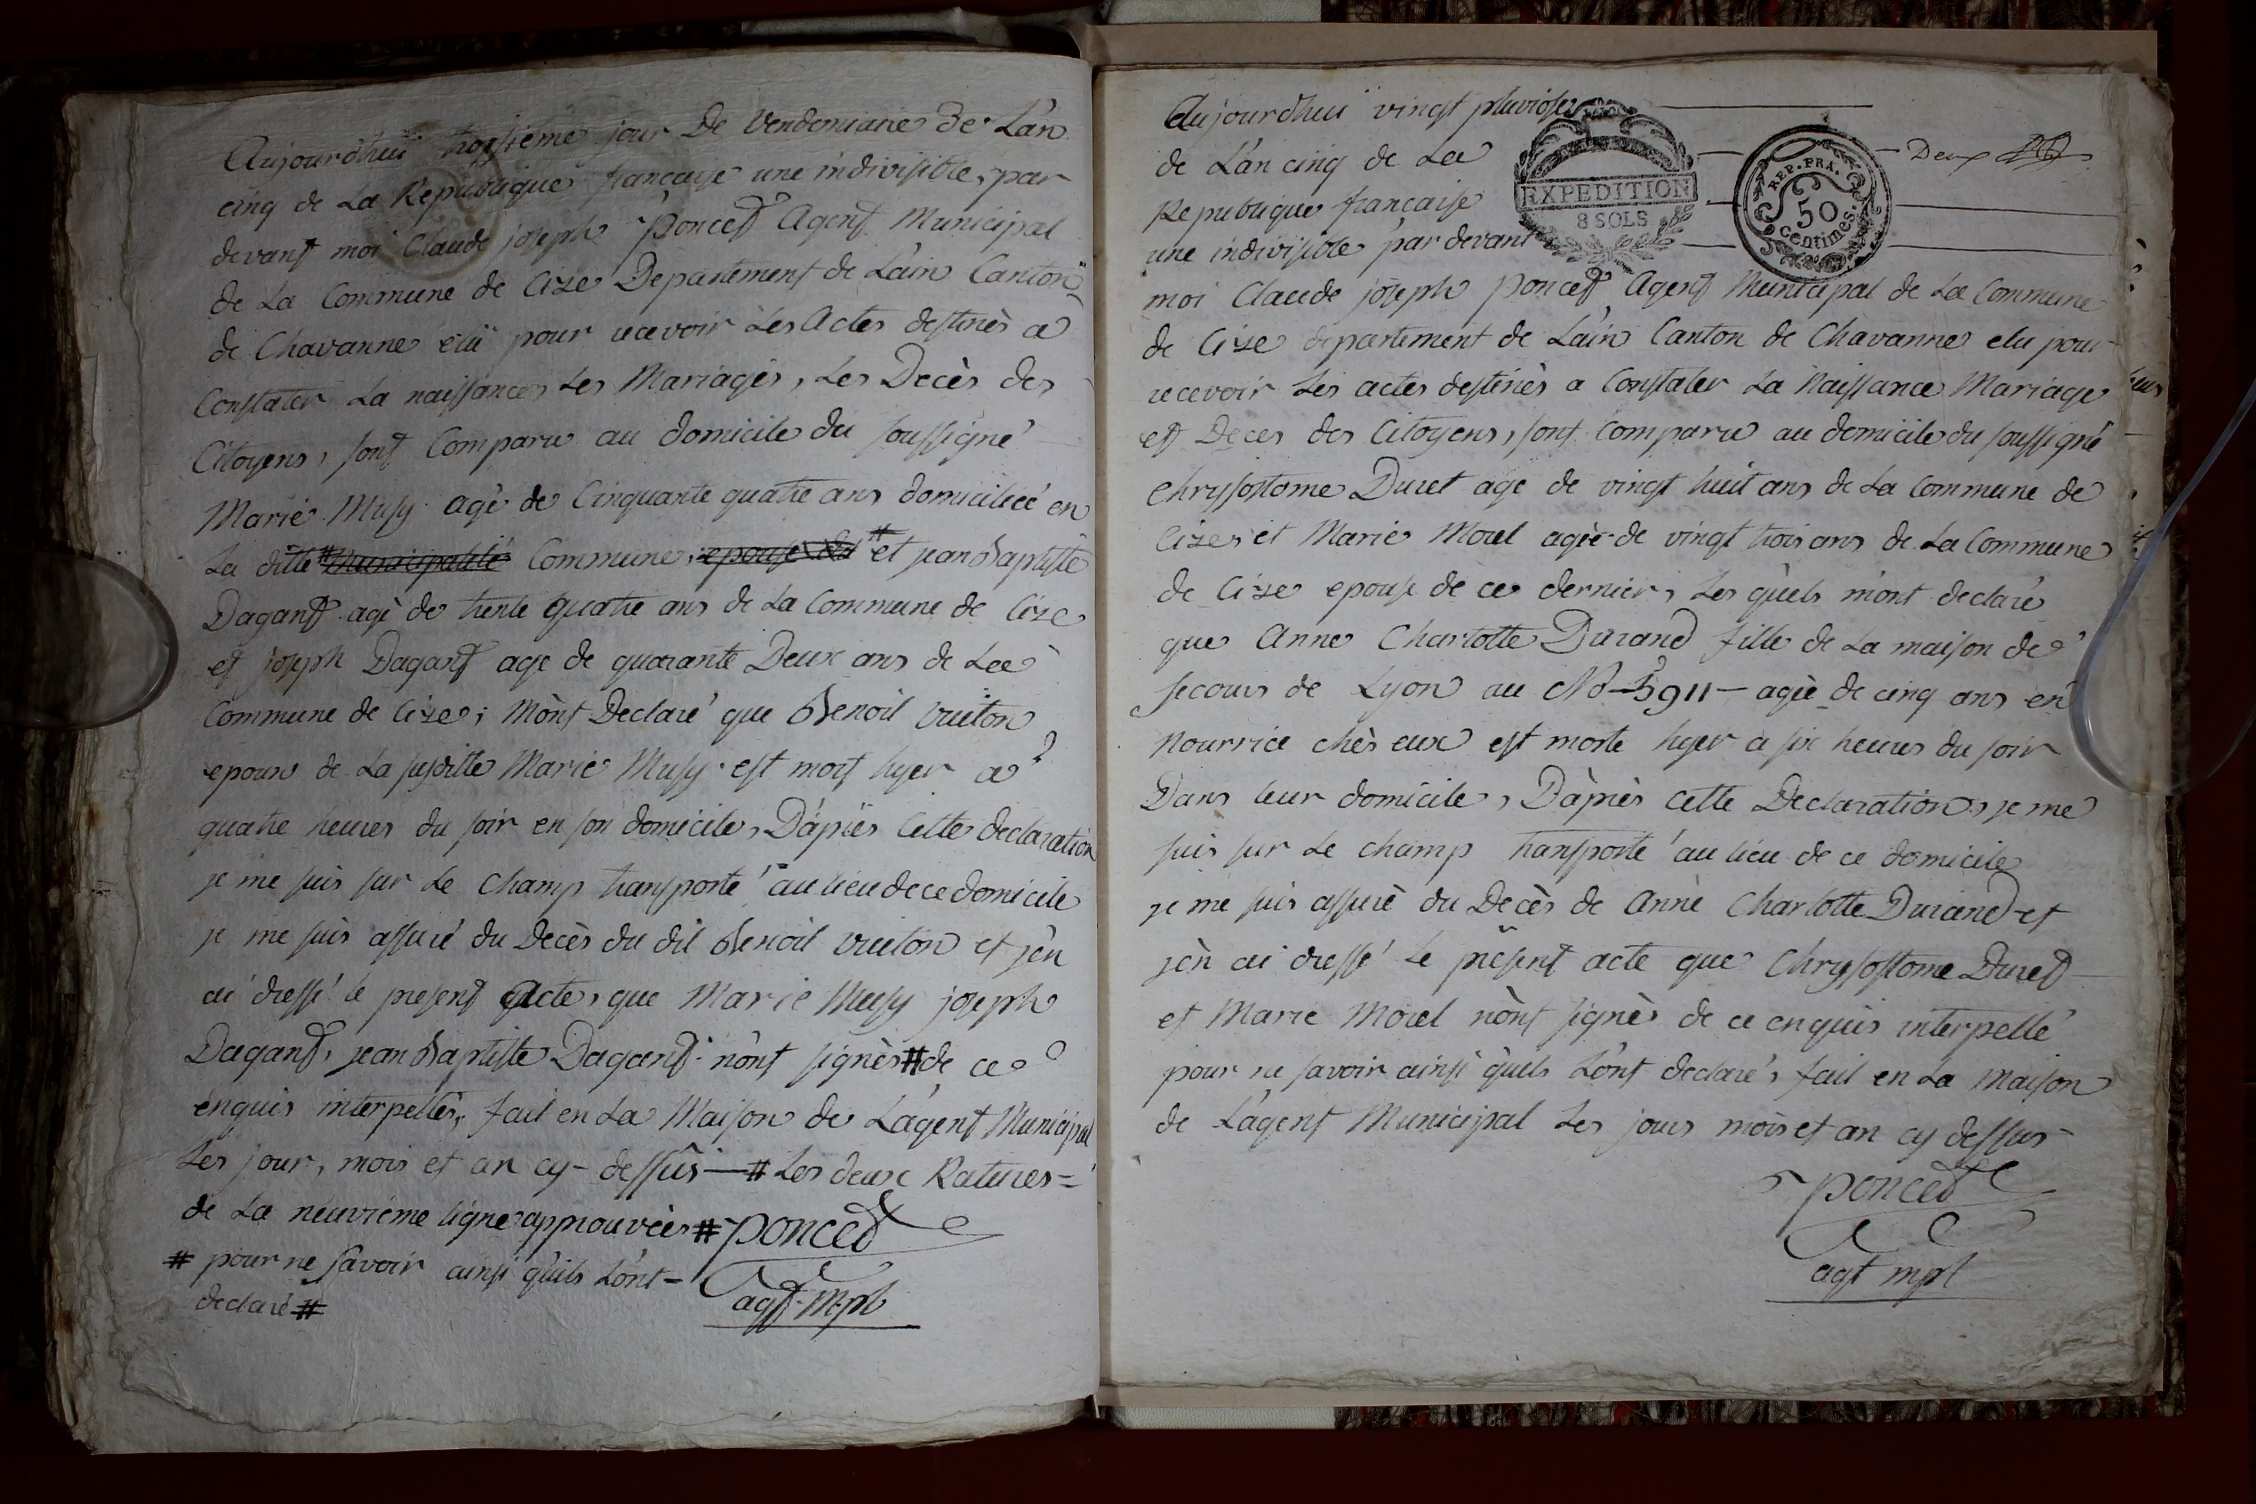 Aujourdhuï troisiéme jour De Vendemiaire De Lan
cinq de La Republique française une indivisible, par
devant moi Claude joseph Poncet Agent Municipal
de La Commune de Cize Departement de Láin Canton
de Chavanne élü pour recevoir Les Actes destinès a
Constater La naissances Les Mariages, Les Decès des
Citoyens, sont Comparu au domicile du soussigné
Marie Musy agè de Cinquante quatre ans domiciliéé en
La ditte # Municipalité Commune, epouse de # et jean Baptiste
Dagant agè de trente quatre ans de La Commune de Cize
et joseph Dagant age de quarante Deux ans de La
Commune de Cize; Mònt Declaré que Benoit Vuiton
epoux de La susditte Marie Musy est mort hyer a
quatre heures du soir en son domicile, Dáprès Cette declaration
je me suis sur Le Champ transporté au lieu de ce domicile
je me suis assuré du Decès du dit Benoit Vuiton et j'en
ai dressé le present Acte, que Marie Musy joseph
Dagant, jean Baptiste Dagant nónt signès # de ce
enquis interpellès, fait en La Maison de Lágent Municipal
Les jour, mois et an cy-dessûs — # Les deux Ratures =
de La neuviéme ligne approuvéés # Poncet
# pour ne savoir ainsi quíls Lónt -
declaré #
agt. M.pl
Aujourdhui vingt pluviose
de Lán cinq de La
Republique française
une indivisible par devant
EXPEDITION
8 SOLS
REP. FRA.
50
centimes.
Deux
moi Claude joseph Poncet Agent Municipal de La Commune
de Cize departement de Láin Canton de Chavanne elu pour
recevoir Les actes destinès a Constater La Naissance Mariage
et Deces des Citoyens, sont Comparu au domicile du soussigné
Chrysostome Duret age de vingt huit ans de La Commune de
Cize, et Marie Morel agèe de vingt trois ans de La Commune
de Cize epouse de ce dernier, Les qùels mónt declaré
que Anne Charlotte Durand fille de La maison de
secours de Lyon au No - 5911 - agèe de cinq ans en
Nourrice chès eux est morte hyer a six heures du soir
Dans leur domicile, Dàprès Cette Declaration, je me
suis sur Le champ transporté au lieu de ce domicile
je me suis assurè du Decès de Anne Charlotte Durand et
jèn ai dressé Le prêsent acte que Chrysostome Duret
et Marie Morel nònt signès de ce enquis interpellé
pour ne savoir ainsi quìls Lònt declaré, fait en La Maison
de Lágent Municipal Les jours mois et an cy dessus -
Poncet
agt mpl